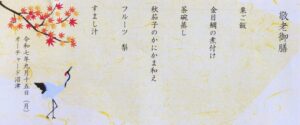 敬老御膳
栗ご飯
金目鯛の煮付け
茶碗蒸し
秋茄子のかにかま和え
フルーツ 梨
すまし汁
令和七年九月十五日(月)
オーチャード沼津